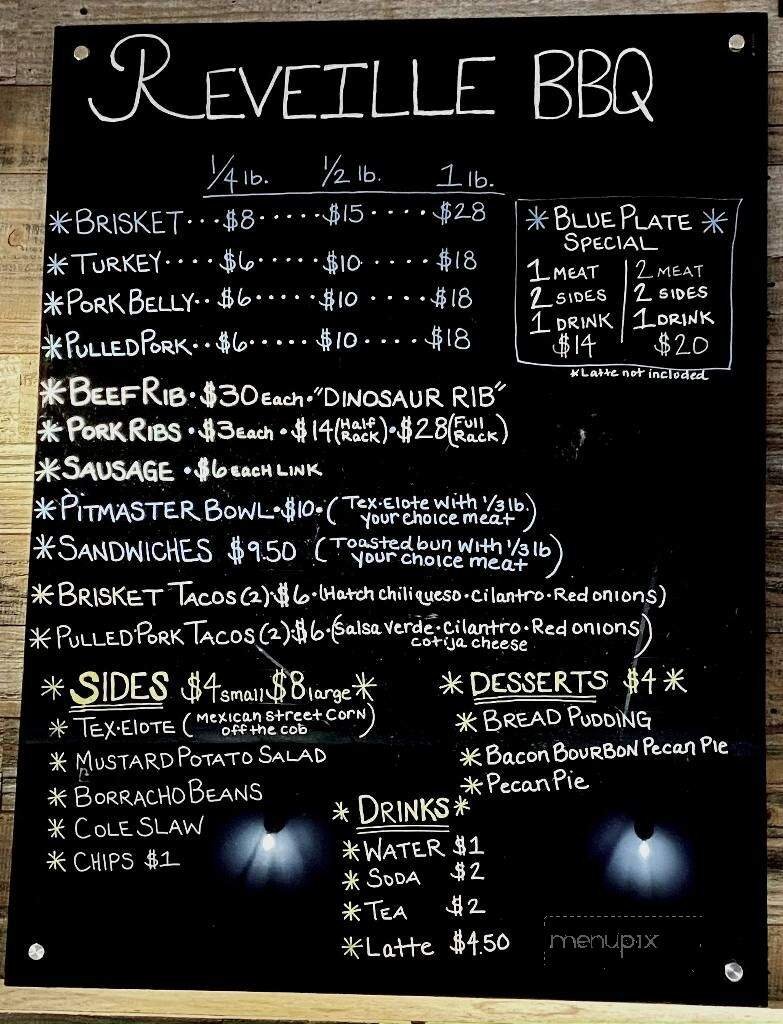 REVEILLE BBQ
1/4 lb. 1/2 lb. 1 lb.
*BRISKET···$8·····$15····$28
*TURKEY····$6·····$10····$18
*PORK BELLY··$6·····$10····$18
*PULLED PORK··$6·····$10····$18
*BLUE PLATE*
SPECIAL
1 MEAT | 2 MEAT
2 SIDES | 2 SIDES
1 DRINK | 1 DRINK
$14 $20
*Latte not included
*BEEF RIB·$30 Each·"DINOSAUR RIB"
*PORK RIBS·$3 Each·$14(Half Rack)·$28(Full Rack)
*SAUSAGE·$6 EACH LINK
*PITMASTER BOWL·$10·(Tex-Elote with 1/3 lb.
your choice meat)
*SANDWICHES $9.50 (Toasted bun with 1/3 lb
your choice meat)
*BRISKET TACOS(2)·$6·(Hatch chili queso·cilantro·Red onions)
*PULLED·PORK TACOS(2)·$6·(Salsa verde·cilantro·Red onions
cotija cheese)
*SIDES $4 small $8 large*
*TEX-ElOTE (Mexican Street Corn
off the cob)
*MUSTARD POTATO SALAD
*BORRACHO BEANS
*COLE SLAW
*CHIPS $1
*DESSERTS $4*
*BREAD PUDDING
*Bacon BOURBON Pecan Pie
*Pecan Pie
*DRINKS*
*WATER $1
*SODA $2
*TEA $2
*Latte $4.50
menupix